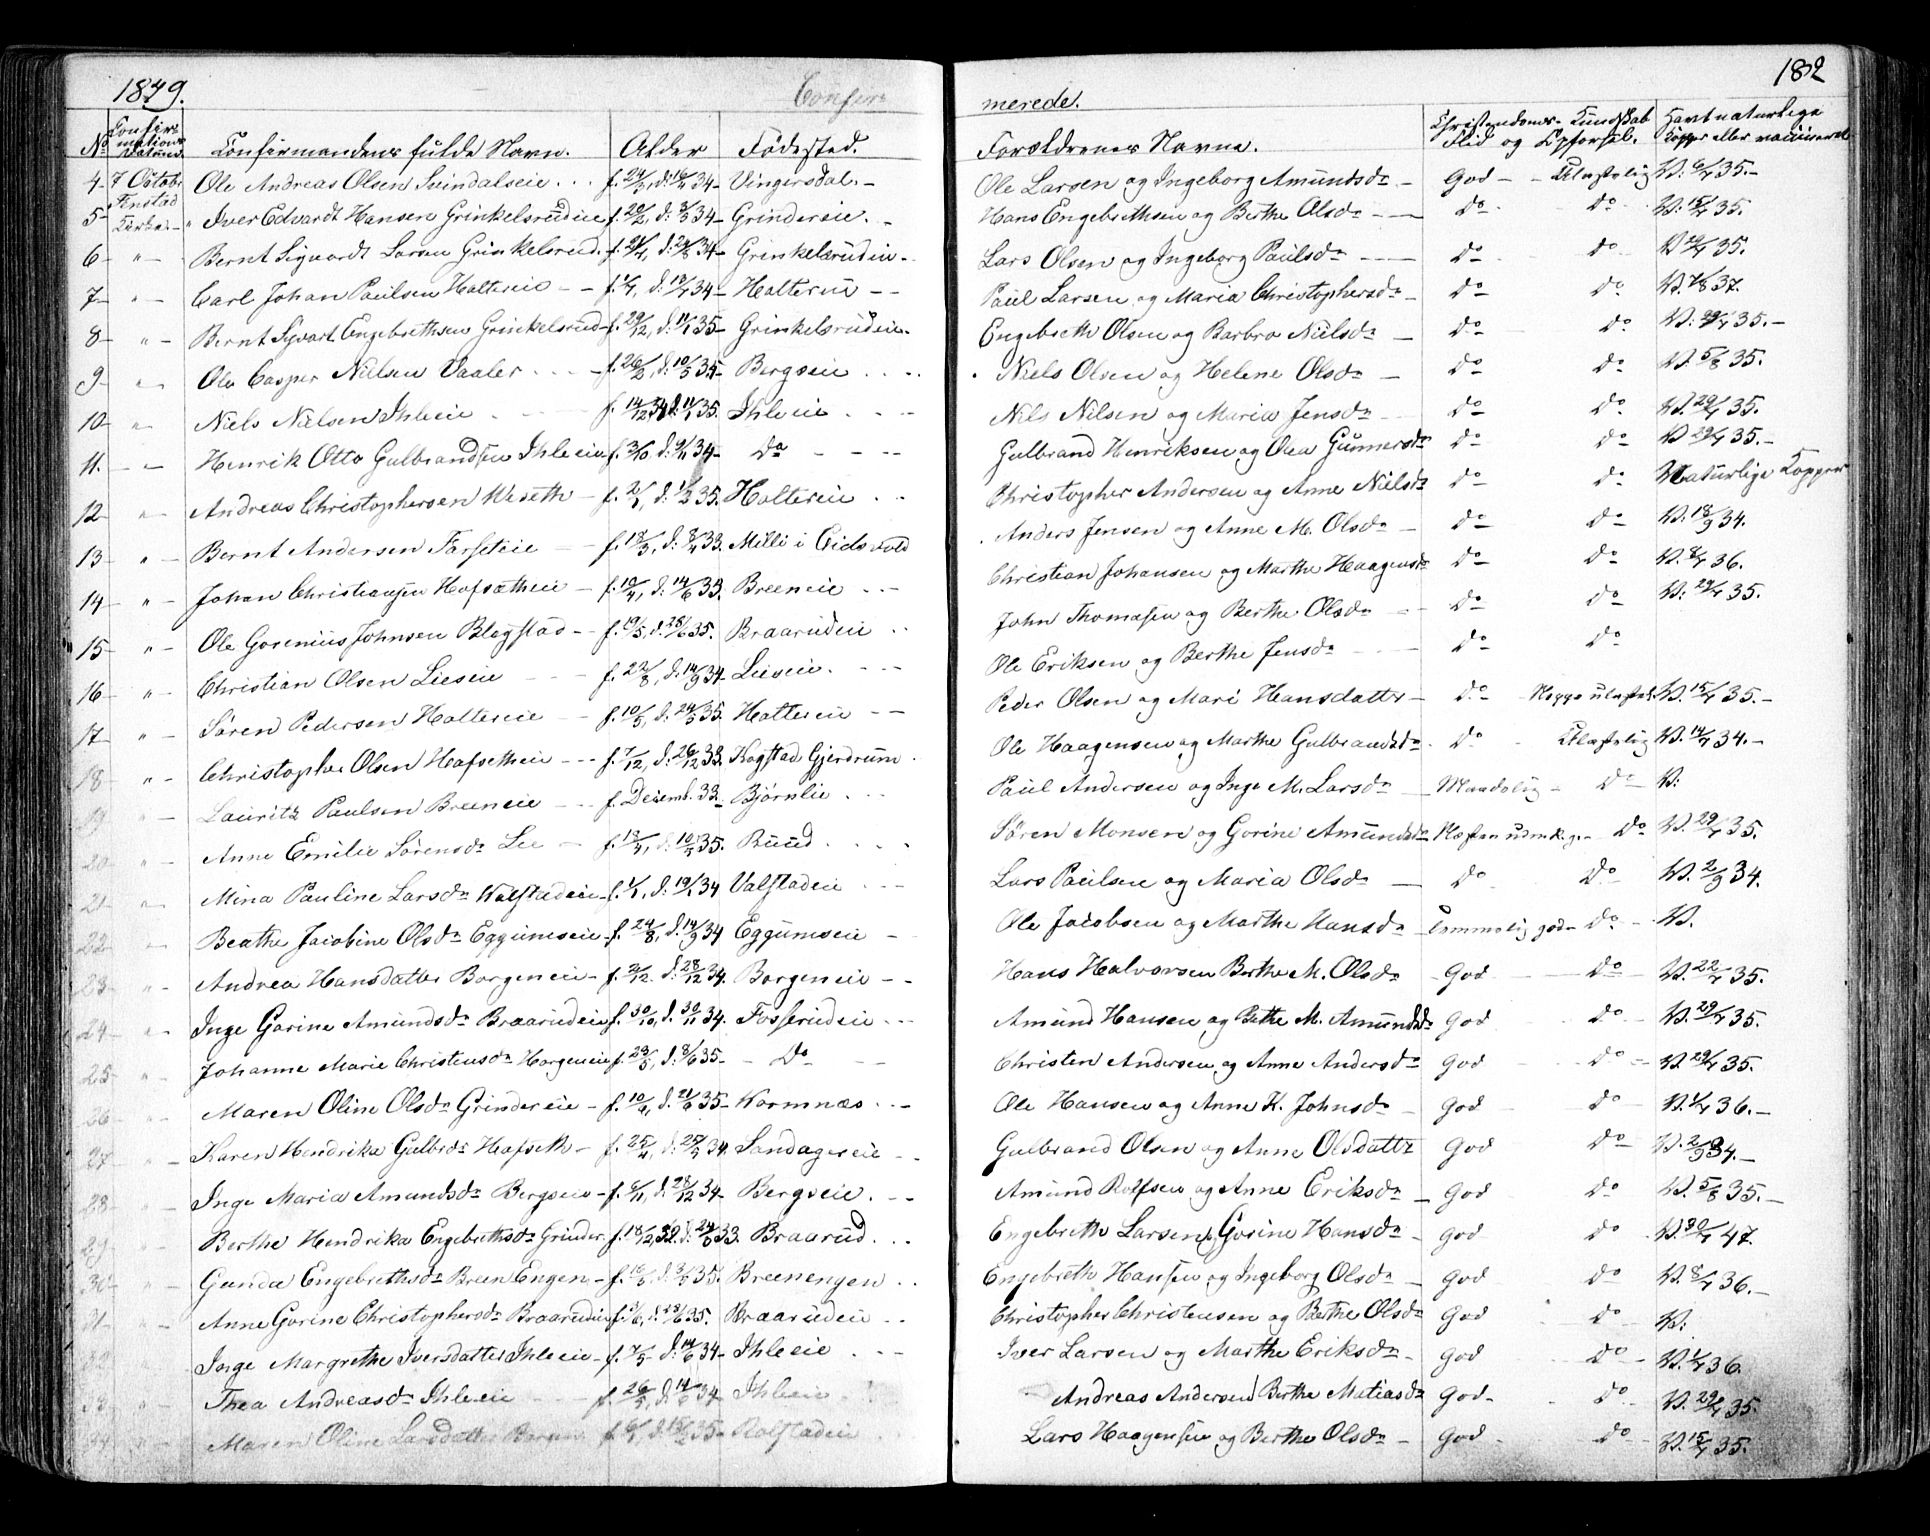 1849.
Confir-
merede.
182
No
Confir-
mations
Datum.
Confirmandens fulde Navn.
Alder
Fødested.
Forældrenes Navne.
Christendoms-Kundskab
Flid og Opførsel.
Havt naturlige
Kopper eller vaccineret
4- 7 Octobr Ole Andreas Olsen Svindalseie . . . f. 24/3, d: 16/4 34- Vingersdal.- Ole Larsen og Ingeborg Amundsdr - God - - Ulastelig V: 6/7 35.-
5- Finstad Kirke.- Iver Edvardt Hansen Grinkelsrudeie f. 20/2, d: 3/3 34- Grindereie. - Hans Engebrethsen og Berthe Olsdr - Do - Do V: 15/7 35.
6 " - Bernt Siguardt Larsen Grinkelsrud. f. 21/7, d: 24/8 34- Grinkelsrudeie. - Lars Olsen og Ingeborg Paulsdr - Do - Do V 29/7 35.
7- " - Carl Johan Paulsen Haltereie - - f. 1/7, d: 13/7 34- Haltereie - - Paul Larsen og Maria Christophersdr - Do Do V. 7/8 37.
8- " - Bernt Syvart Engebrethsen Grinkelsrud- f. 29/12, d: 11/1 35- Grinkelsrudeie. Engebreth Olsen og Barbro Nielsdr - Do Do V: 29/7 35.-
9- " Ole Casper Nielsen Vaaler . . - f. 26/2, d: 10/5 35- Bergseie . . . Niels Olsen og Helene Olsdr - Do Do V. 5/8 35.
10 " - Niels Nielsen Ihleeie . f. 14/12 34 d: 11/1 35. Ihleeie . . . Nils Nilsen og Maria Jensdr Do Do V. 29/7 35.
11. - - Henrik Otto Gulbrandsen Ihleeie f. 3/10 d: 9/11 34- Do - - - Gulbrand Henriksen og Olea Gunnersdr Do Do V 29/7 35.-
12 " Andreas Christophersen Weseth - f. 2/1, d: 1/2 35. Haltereie . . Christopher Andersen og Anne Nielsdr Do Do Naturlige Kopper
13 " - Bernt Andersen Farseteie - f. 18/3, d: 8/4 33. Milli i Eidsvold Anders Jensen og Anne M. Olsdr - Do Do V. 18/9 34.
14 " - Johan Christiansen Hofsætheie - f. 10/4, d: 14/6 33. Breeneie . . - Christian Johansen og Marthe Haagensdr Do Do V. 8/7 36.
15 " - Ole Gorenius Johnsen Blegstad - f. 19/5, d: 28/6 35. Braarudeie . . John Thomasen og Berthe Olsdr Do Do V: 29/7 35.
16 - Christian Olsen Lieseie f. 22/8, d: 14/9 34- Lieseie. Ole Eriksen og Berthe Jensdr Do Do
17 " - Søren Pedersen Haltereie - f. 10/5, d: 24/5 35. Haltereie - - Peder Olsen og Mari Hansdatter - Do - V. 15/7 35.-
18 " - Christopher Olsen Hafsetheie - - f. 7/12, d: 26/12 33. Kogstad Gjerdrum. Ole Haagensen og Marthe Gulbrandsdr . Do Ulastelig V. 14/7 34.-
19 - Lauritz Paulsen Breeneie - f. Decemb. 33. Bjørnlie . . . Paul Andersen og Inge M. Larsdr - Maadelig - Do V:
20 " - Anne Emilie Sørensdr Lee - f. 13/4, d: 10/5 35. Ruud . . . Søren Monsen og Gorine Amundsdr Næsten udmkg. - Do V. 29/7 35.
21 " Mina Pauline Larsdr Walstadeie f. 1/1, d: 19/1 34 Valstadeie - Lars Paulsen og Maria Olsdr - Do Do V. 2/9 34.
22 " Beathe Jacobine Olsdr Eggumseie f. 24/8, d: 14/9 34 Eggumseie - Ole Jacobsen og Marthe Hansdr - Temmelig god - Do - V.
23 " Andrea Hansdatter Borgeneie - f. 2/12 d: 28/12 34. Borgeneie - - Hans Halvorsen Berthe M. Olsdr - God Do V. 22/7 35.
24 " Inge Gorine Amundsdr Braarudeie f. 30/10, d: 30/11 34. Fosserudeie . . - Amund Hansen og Bethe M. Amundsdr God Do V. 29/7 35.
25 " Johanne Marie Christensdr Horgeneie f. 23/5, d: 8/6 35 - Do - Christen Andersen og Anne Andersdr God Do V. 29/7 35.
26 " Maren Oline Olsdr Grindereie - f. 10/9, d: 21/9 35- Kormnæs . . - Ole Hansen og Anne K. Johnsdr - God Do V. 1/7 36.-
27 " - Karen Hendrika Gulbrdr Hafseth - f. 25/4, d: 25/5 34. Sandagereie - - Gulbrand Olsen og Anne Olsdattr God Do V. 2/9 34.-
28 " - Inge Maria Amundsdr Bergseie - f. 8/11, d: 28/12 34- Bergseie. - - Amund Rolfsen og Anne Eriksdr - God Do V. 5/8 35.-
29 " - Berthe Hendrika Engebrethsdr Grinder f. 18/12 32. d: 24/6 33. Braarud . . . Engebreth Larsen, Gorine Hansdr - God Do V. 30/7 47.
30 " - Gunda Engebrethsdr Breen Engen - f. d: 35. Breenengen . . Engebreth Hansen og Ingeborg Olsdr - God Do V. 8/7 36.-
31 " - Anne Gorine Christophersdr Braarudeie f. 1/6, d: 13/6 35. Braarudeie . . Christopher Christensen og Berthe Olsdr God Do - V.
Inge Margrethe Iversdatter Ihleeie - f. 7/5 - d: 14/6 34- Ihleeie . . - Iver Larsen og Marthe Eriksdr - God Do - V. 1/7 36.
Thea Andreasdr Ihleeie f. 26/5, d: 14/6 34. Ihleeie . Andreas Andersen Berthe Matiasdr God- Do V. 29/7 35.
Maren Oline Larsdatter f. 6/1, d: 15/2 35- Rolstadeie Lars Haagensen og Berthe Olsdr - God - Do - V. 15/7 35.